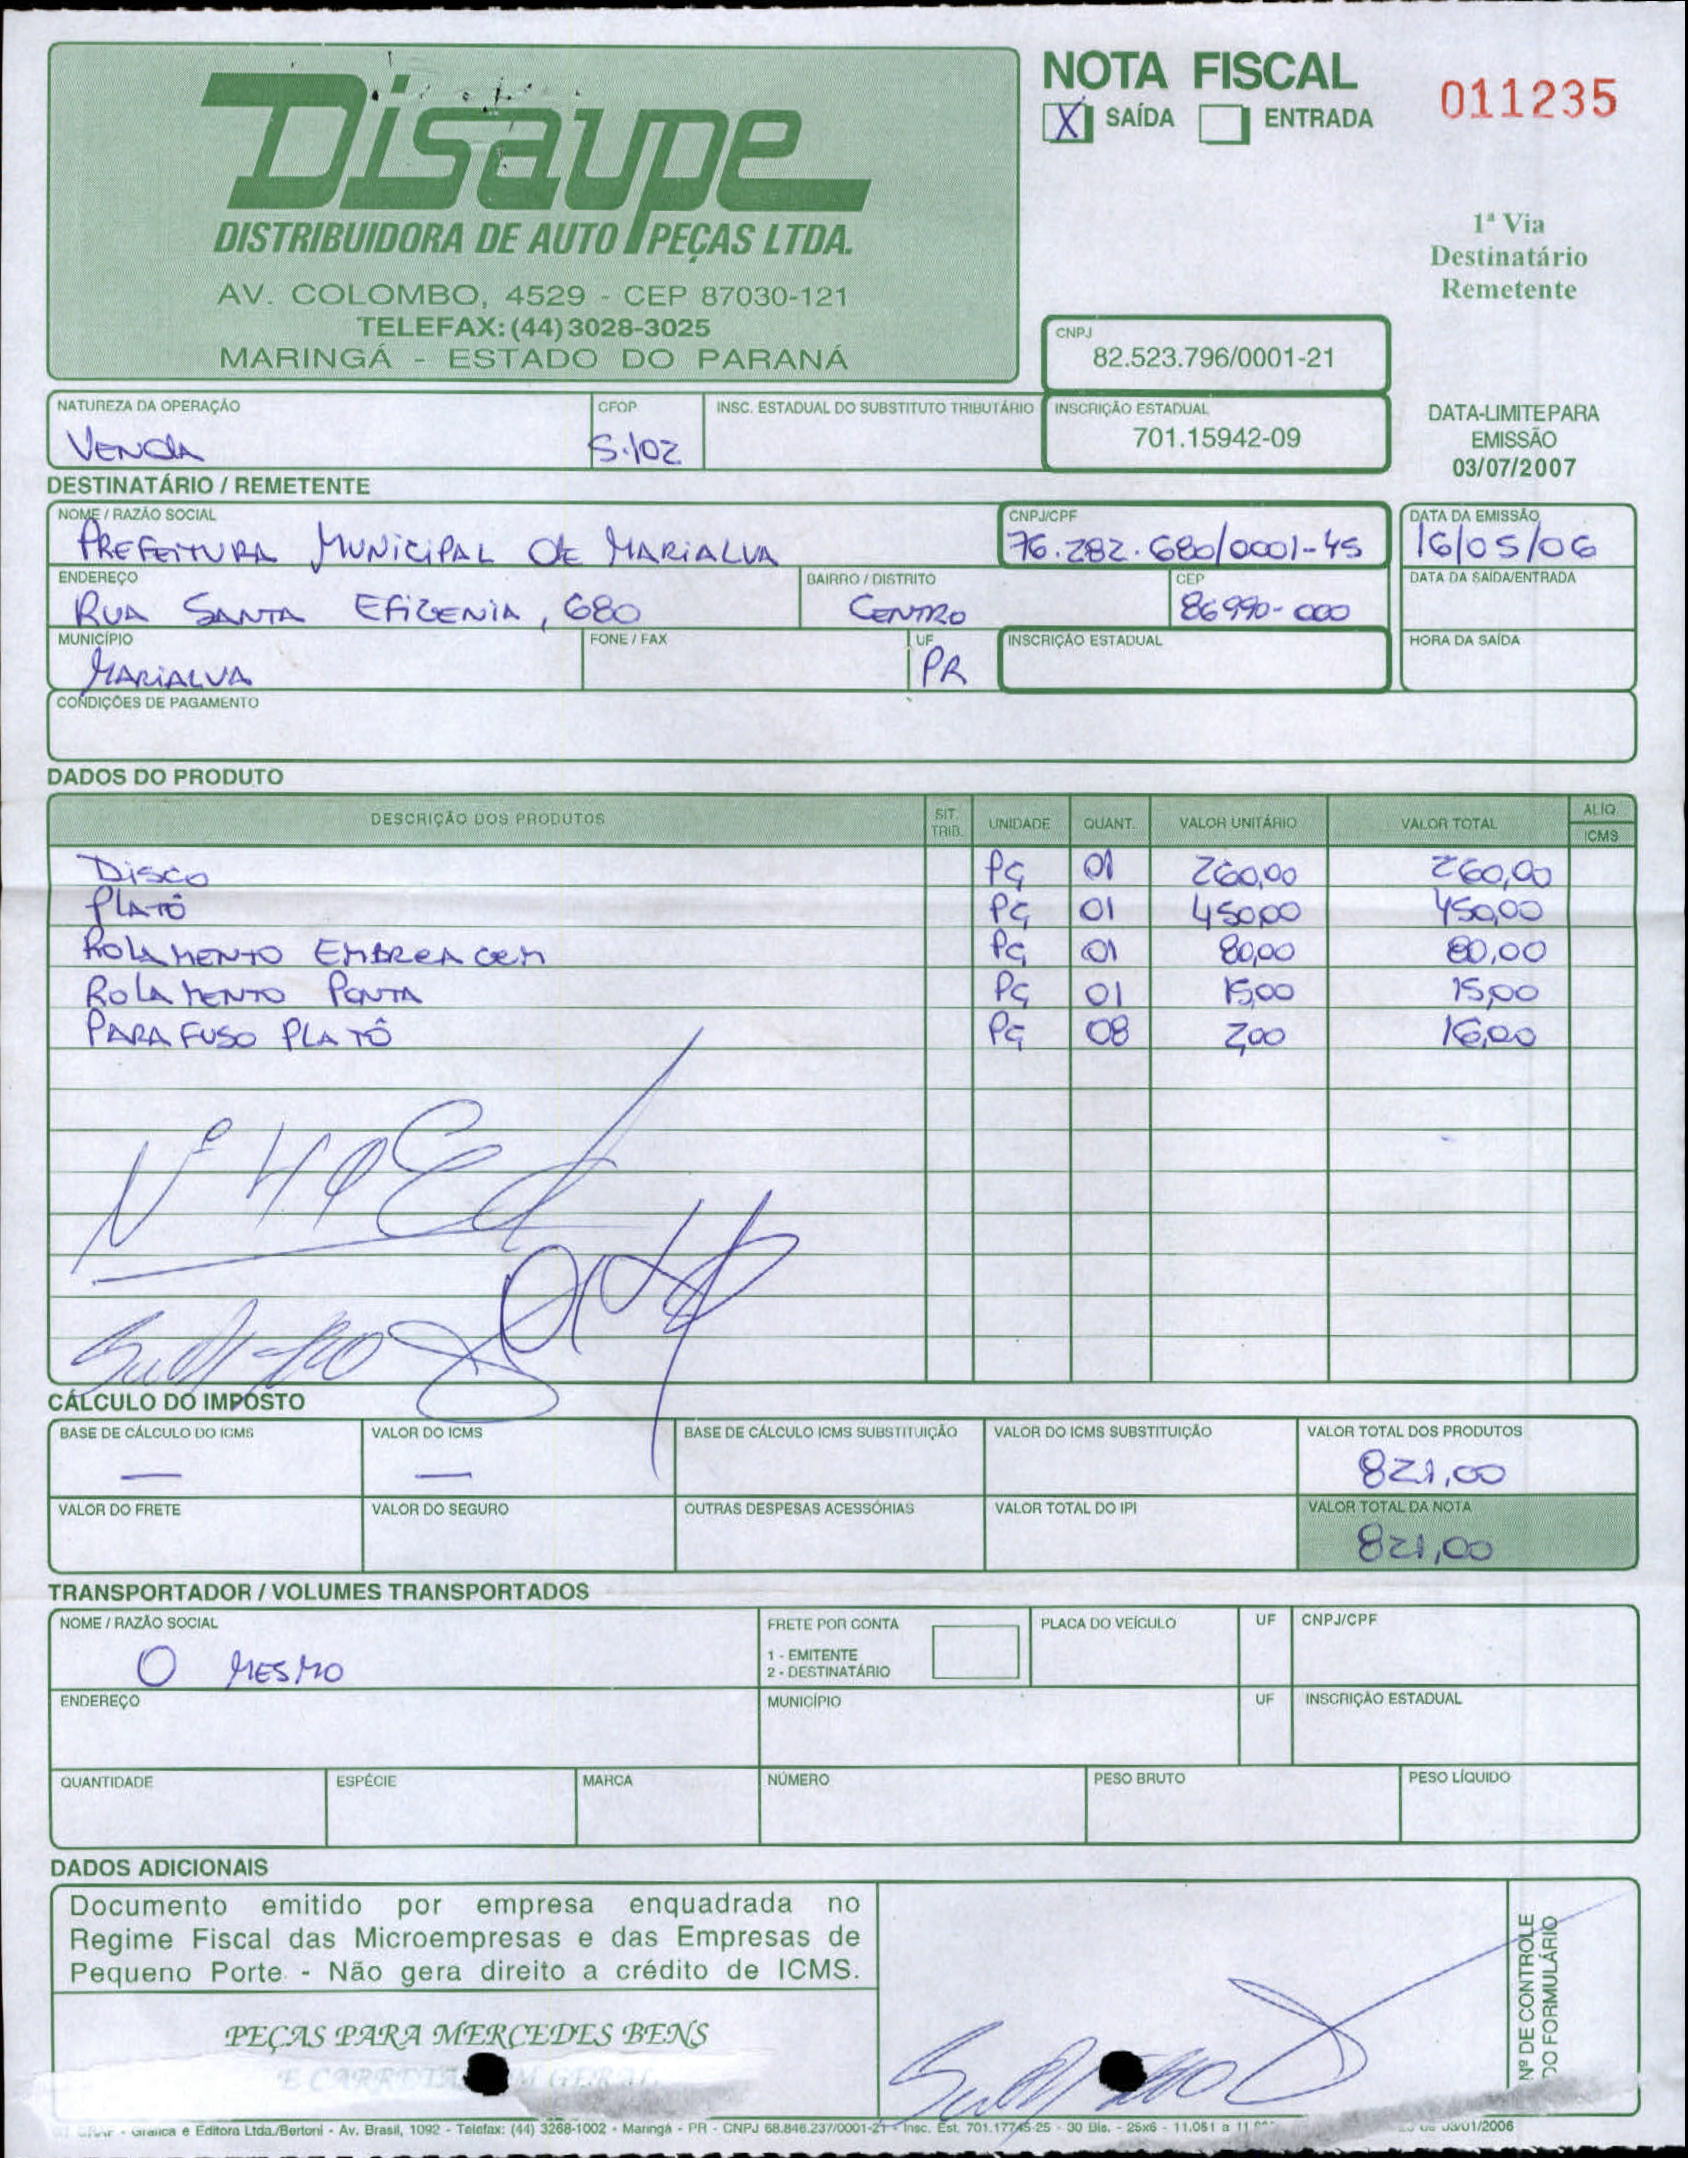 Disaupe
DISTRIBUIDORA DE AUTO PEÇAS LTDA.
AV. COLOMBO, 4529 - CEP 87030-121
TELEFAX: (44) 3028-3025
MARINGÁ - ESTADO DO PARANÁ
NOTA FISCAL
X SAÍDA ENTRADA
011235
1ª Via
Destinatário
Remetente
CNPJ
82.523.796/0001-21
NATUREZA DA OPERAÇÃO CFOP INSC. ESTADUAL DO SUBSTITUTO TRIBUTÁRIO INSCRIÇÃO ESTADUAL
VENDA 5.102 701.15942-09
DATA-LIMITE PARA
EMISSÃO
03/07/2007
DESTINATÁRIO / REMETENTE
NOME / RAZÃO SOCIAL CNPJ/CPF DATA DA EMISSÃO
PREFEITURA MUNICIPAL DE MARIALVA 76.282.680/0001-45 16/05/06
ENDEREÇO BAIRRO / DISTRITO CEP DATA DA SAÍDA/ENTRADA
RUA SANTA EFIGENIA, 680 CENTRO 86990-000
MUNICÍPIO FONE / FAX UF INSCRIÇÃO ESTADUAL HORA DA SAÍDA
MARIALVA PR
CONDIÇÕES DE PAGAMENTO
DADOS DO PRODUTO
DESCRIÇÃO DOS PRODUTOS SIT. TRIB. UNIDADE QUANT. VALOR UNITÁRIO VALOR TOTAL ALIQ. ICMS
DISCO PÇ 01 260,00 260,00
PLATÔ PÇ 01 450,00 450,00
ROLAMENTO EMBREAGEM PÇ 01 80,00 80,00
ROLAMENTO PONTA PÇ 01 15,00 15,00
PARAFUSO PLATÔ PÇ 08 2,00 16,00
CÁLCULO DO IMPOSTO
BASE DE CÁLCULO DO ICMS VALOR DO ICMS BASE DE CÁLCULO ICMS SUBSTITUIÇÃO VALOR DO ICMS SUBSTITUIÇÃO VALOR TOTAL DOS PRODUTOS
— — 821,00
VALOR DO FRETE VALOR DO SEGURO OUTRAS DESPESAS ACESSÓRIAS VALOR TOTAL DO IPI VALOR TOTAL DA NOTA
821,00
TRANSPORTADOR / VOLUMES TRANSPORTADOS
NOME / RAZÃO SOCIAL FRETE POR CONTA PLACA DO VEÍCULO UF CNPJ/CPF
O MESMO
1 - EMITENTE
2 - DESTINATÁRIO
ENDEREÇO MUNICÍPIO UF INSCRIÇÃO ESTADUAL
QUANTIDADE ESPÉCIE MARCA NÚMERO PESO BRUTO PESO LÍQUIDO
DADOS ADICIONAIS
Documento emitido por empresa enquadrada no
Regime Fiscal das Microempresas e das Empresas de
Pequeno Porte - Não gera direito a crédito de ICMS.
PEÇAS PARA MERCEDES BENS
Nº DE CONTROLE
DO FORMULÁRIO
Gráfica e Editora Ltda./Bertoni - Av. Brasil, 1092 - Telefax: (44) 3268-1002 - Maringá - PR - CNPJ 68.846.237/0001-21 - Insc. Est. 701.17745-25 - 30 Bls. - 25x6 - 11.051 a 03/01/2006